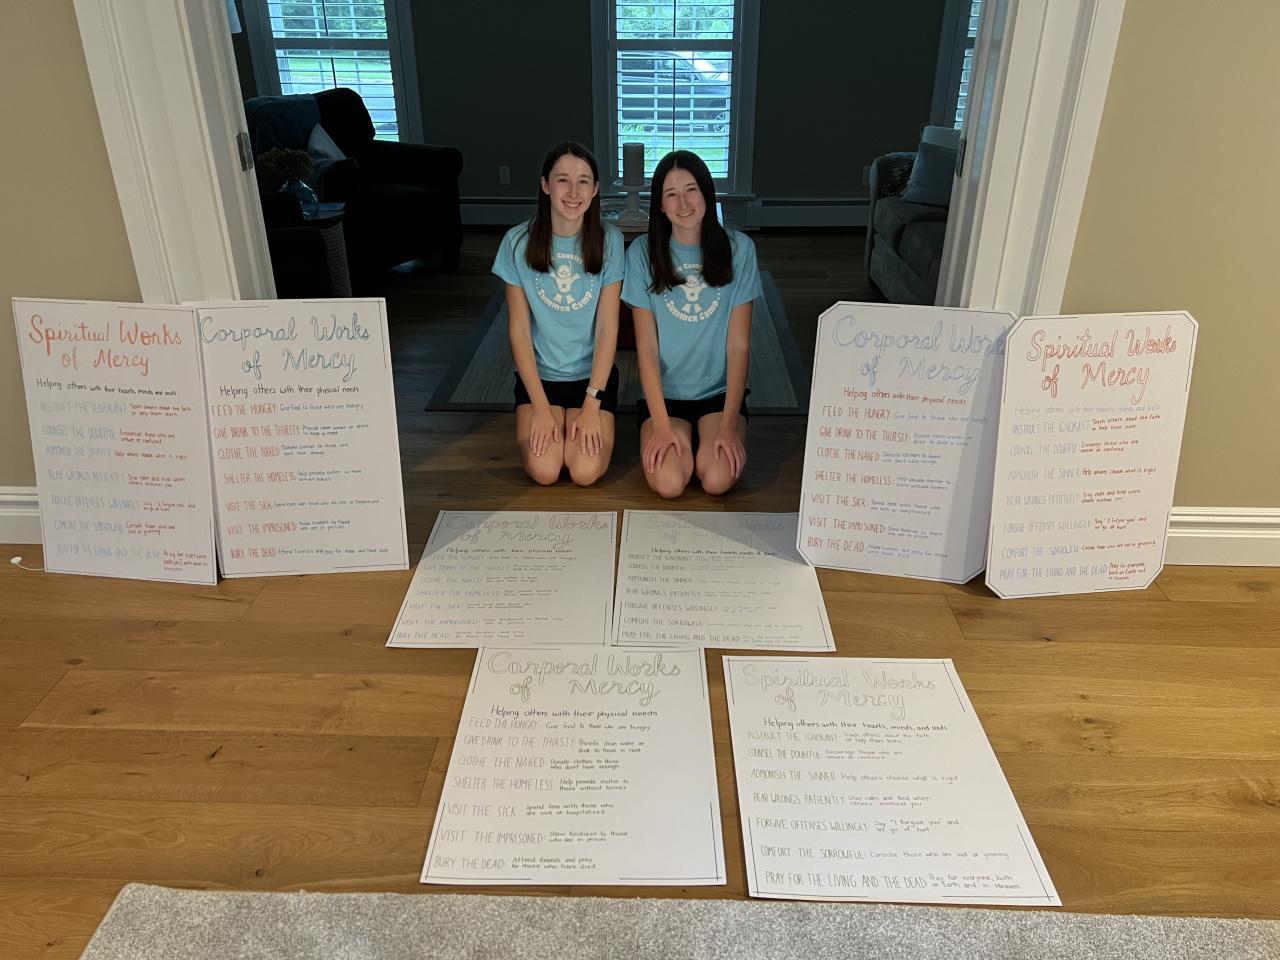 Country
Summer Camp
Country
Summer Camp
Spiritual Works
of Mercy
Helping others with their hearts, minds and souls
INSTRUCT THE IGNORANT: Teach others about the faith
or help them learn
COUNSEL THE DOUBTFUL: Encourage those who are
unsure or confused
ADMONISH THE SINNER: Help others choose what is right
BEAR WRONGS PATIENTLY: Stay calm and kind when
others mistreat you
FORGIVE OFFENSES WILLINGLY: Say "I forgive you" and
let go of hurt
COMFORT THE SORROWFUL: Console those who
are sad or grieving
PRAY FOR THE LIVING AND THE DEAD: Pray for everyone,
both on Earth and in
Heaven
Corporal Works
of Mercy
Helping others with their physical needs
FEED THE HUNGRY: Give food to those who are hungry
GIVE DRINK TO THE THIRSTY: Provide clean water or drink
to those in need
CLOTHE THE NAKED: Donate clothes to those who
don't have enough
SHELTER THE HOMELESS: Help provide shelter to those
without homes
VISIT THE SICK: Spend time with those who are sick or hospitalized
VISIT THE IMPRISONED: Show kindness to those
who are in prison
BURY THE DEAD: Attend funerals and pray for those who have died
Corporal Work
of Mercy
Helping others with their physical needs
FEED THE HUNGRY: Give food to those who are hungry
GIVE DRINK TO THE THIRSTY: Provide clean water or
drink to those in need
CLOTHE THE NAKED: Donate clothes to those
who don't have enough
SHELTER THE HOMELESS: Help provide shelter to
those without homes
VISIT THE SICK: Spend time with those who
are sick or hospitalized
VISIT THE IMPRISONED: Show kindness to those
who are in prison
BURY THE DEAD: Attend funerals and pray
for those who have died
Spiritual Works
of Mercy
Helping others with their hearts, minds, and souls
INSTRUCT THE IGNORANT: Teach others about the faith
or help them learn
COUNSEL THE DOUBTFUL: Encourage those who are
unsure or confused
ADMONISH THE SINNER: Help others choose what is right
BEAR WRONGS PATIENTLY: Stay calm and kind when
others mistreat you
FORGIVE OFFENSES WILLINGLY: Say "I forgive you" and
let go of hurt
COMFORT THE SORROWFUL: Console those who are sad or grieving
PRAY FOR THE LIVING AND THE DEAD: Pray for everyone,
both on Earth and in
Heaven
Corporal Works
of Mercy
Helping others with their physical needs
FEED THE HUNGRY: Give food to those who are hungry
GIVE DRINK TO THE THIRSTY: Provide clean water or
drink to those in need
CLOTHE THE NAKED: Donate clothes to those
who don't have enough
SHELTER THE HOMELESS: Help provide shelter to
those without homes
VISIT THE SICK: Spend time with those who
are sick or hospitalized
VISIT THE IMPRISONED: Show kindness to those
who are in prison
BURY THE DEAD: Attend funerals and pray
for those who have died
Spiritual Works
of Mercy
Helping others with their hearts, minds, and souls
INSTRUCT THE IGNORANT: Teach others about the faith
or help them learn
COUNSEL THE DOUBTFUL: Encourage those who are
unsure or confused
ADMONISH THE SINNER: Help others choose what is right
BEAR WRONGS PATIENTLY: Stay calm and kind when
others mistreat you
FORGIVE OFFENSES WILLINGLY: Say "I forgive you" and
let go of hurt
COMFORT THE SORROWFUL: Console those who are sad or grieving
PRAY FOR THE LIVING AND THE DEAD: Pray for everyone, both
on Earth and in Heaven
Corporal Works
of Mercy
Helping others with their physical needs
FEED THE HUNGRY: Give food to those who are hungry
GIVE DRINK TO THE THIRSTY: Provide clean water or
drink to those in need
CLOTHE THE NAKED: Donate clothes to those
who don't have enough
SHELTER THE HOMELESS: Help provide shelter to
those without homes
VISIT THE SICK: Spend time with those who
are sick or hospitalized
VISIT THE IMPRISONED: Show kindness to those
who are in prison
BURY THE DEAD: Attend funerals and pray
for those who have died
Spiritual Works
of Mercy
Helping others with their hearts, minds, and souls
INSTRUCT THE IGNORANT: Teach others about the faith
or help them learn
COUNSEL THE DOUBTFUL: Encourage those who are
unsure or confused
ADMONISH THE SINNER: Help others choose what is right
BEAR WRONGS PATIENTLY: Stay calm and kind when
others mistreat you
FORGIVE OFFENSES WILLINGLY: Say "I forgive you" and
let go of hurt
COMFORT THE SORROWFUL: Console those who are sad or grieving
PRAY FOR THE LIVING AND THE DEAD: Pray for everyone, both
on Earth and in Heaven